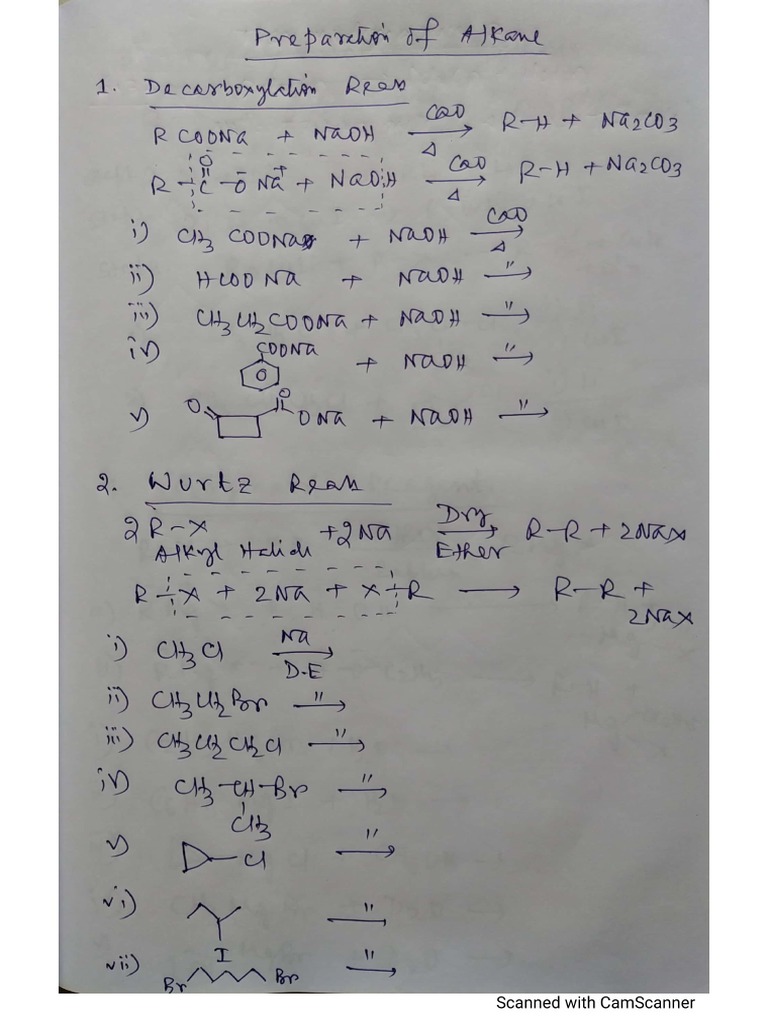 Preparation of Alkane
1. Decarboxylation Reaⁿ
R COONa + NaOH CaO Δ → R-H + Na2CO3
R-C(=O)-O⁻ Na⁺ + NaOH CaO Δ → R-H + Na2CO3
i) CH3 COONa + NaOH CaO Δ →
ii) HCOO Na + NaOH " →
iii) CH3CH2COONa + NaOH " →
iv) COONa + NaOH " →
v) O O ONa + NaOH " →
2. Wurtz Reaⁿ
2 R-X + 2Na Dry Ether → R-R + 2NaX
Alkyl Halide
R-X + 2Na + X-R → R-R +
2NaX
i) CH3Cl Na D.E →
ii) CH3CH2Br " →
iii) CH3CH2CH2Cl " →
iv) CH3-CH-Br " →
CH3
v) Cl " →
vi) I " →
vii) Br Br " →
Scanned with CamScanner